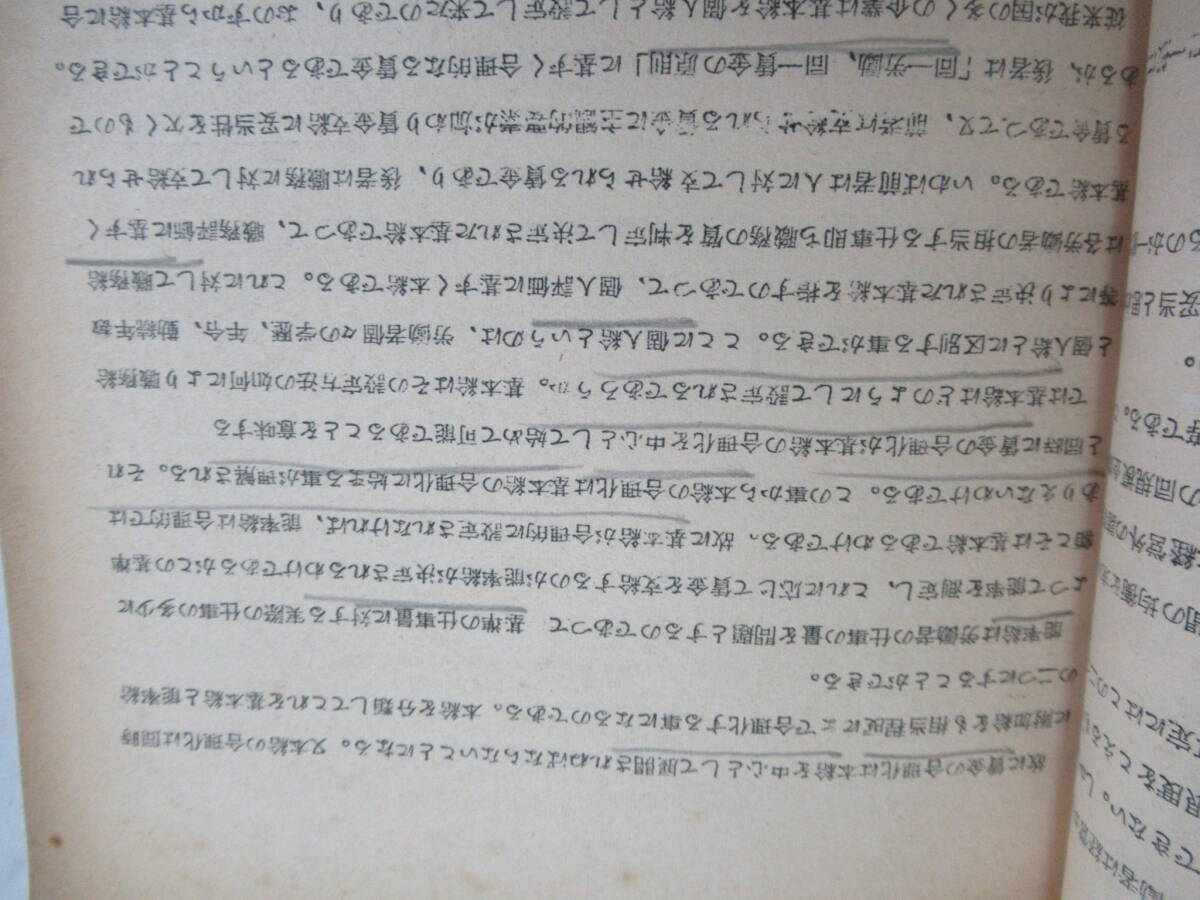 故に賃金の合理化は本給を中心として展開されねばならないことになる。又本給の合理化は同時
に附加給をも相当程度にまで合理化する事になるのである。本給を分類してこれを基本給と能率給
の二つにすることができる。
能率給は労働者の仕事の量を問題とするのであつて 基準の仕事量に対する実際の仕事の多少に
よつて能率を測定し、これに応じて賃金を支給するのが能率給が決定されるわけであるがこの基準
額こそは基本給であるわけである。故に基本給が合理的に設定されなければ、能率給は合理的では
ありえないわけである。この事から本給の合理化は基本給の合理化に始まる事が理解される。それ
と同時に賃金の合理化が基本給の合理化を中心として始めて可能であることを意味する
では基本給はどのようにして設定されるであろうか。基本給はその設定方法の如何により職務給
と個人給とに区別する事ができる。ここに個人給というのは、労働者個々の学歴、年令、勤続年数
等により決定された基本給を指すのであつて、個人評価に基ずく本給である。これに対して職務給
は各労働者の担当する仕事即ち職務の質を判定して決定された基本給であつて、職務評価に基ずく
基本給である。いわば前者は人に対して支給せられる賃金であり、後者は職務に対して支給せられ
る賃金であつて又、前者は支給せられる賃金に主観的要素が加わり賃金支給に妥当性を欠くもので
あるが、後者は「同一労働、同一賃金の原則」に基ずく合理的なる賃金であるということができる。
従来我が国の多くの企業は基本給を個人給として設定して来たのであり、おのずから基本給に合
できない。
定にはこの
間の均衡
経営外の
の同規模
妥当と
るのが